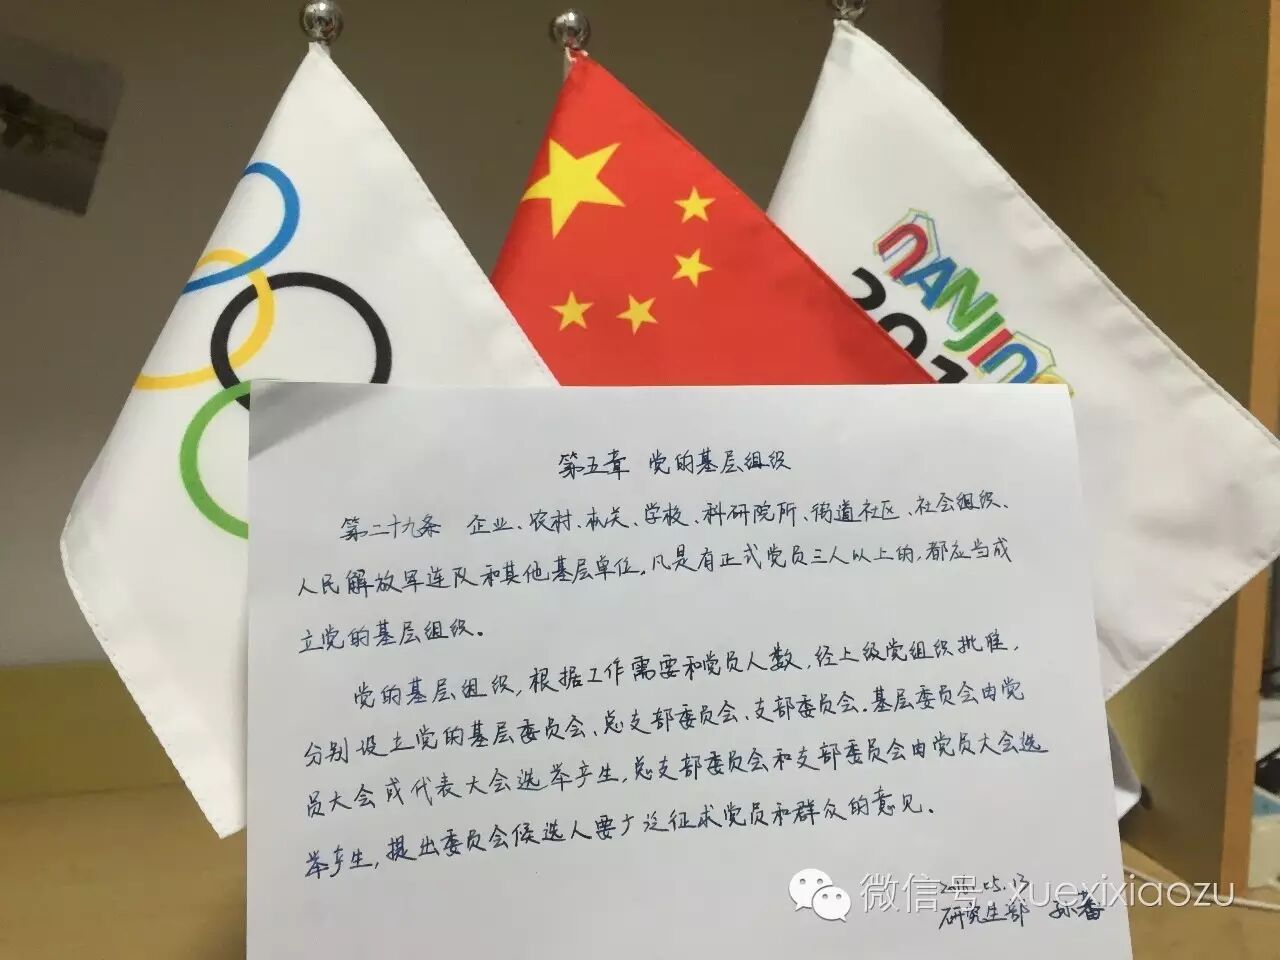 NANJING
201
第五章 党的基层组织
第二十九条 企业、农村、机关、学校、科研院所、街道社区、社会组织、
人民解放军连队和其他基层单位,凡是有正式党员三人以上的,都应当成
立党的基层组织。
党的基层组织,根据工作需要和党员人数,经上级党组织批准,
分别设立党的基层委员会、总支部委员会、支部委员会。基层委员会由党
员大会或代表大会选举产生,总支部委员会和支部委员会由党员大会选
举产生,提出委员会候选人要广泛征求党员和群众的意见。
05.13
研究生部 孙
微信号: xuexixiaozu